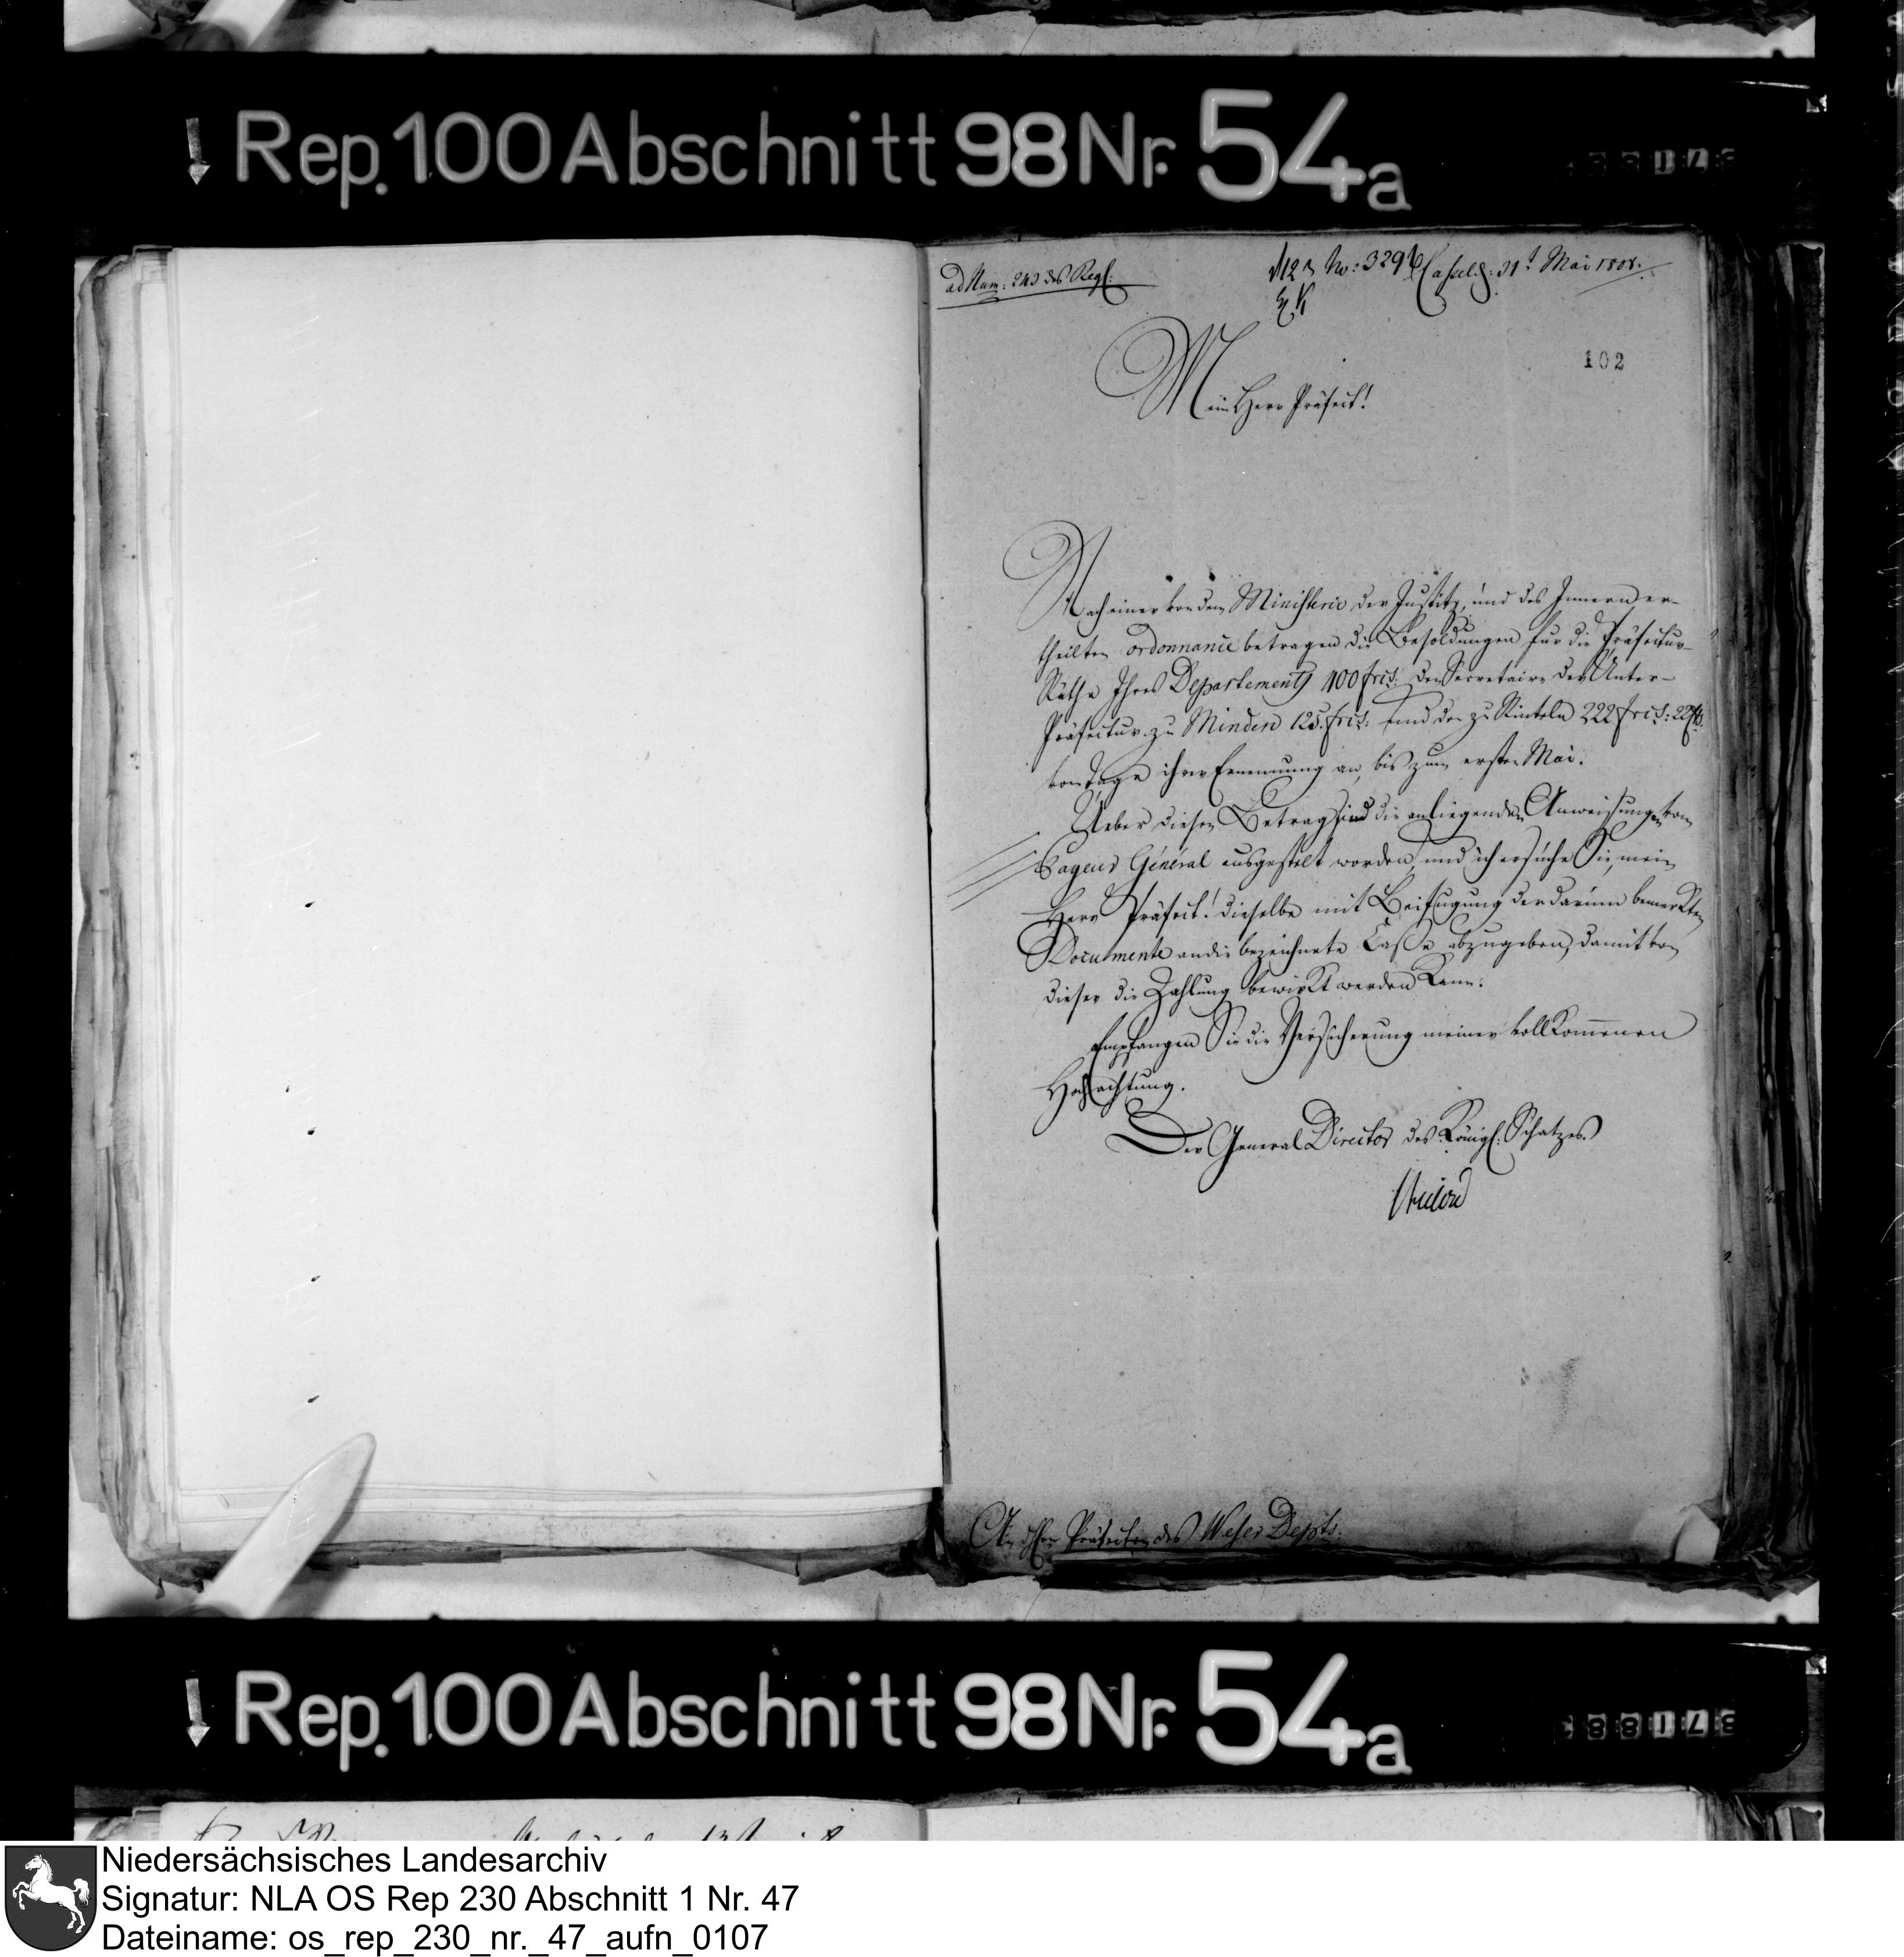 Rep. 100 Abschnitt 98 Nr. 54a
ad Num: 243 des Regl:
No: 3296 Cassel d: 31t Mai 1808.
102
Mein Herr Präfect!
Nach einer von dem Ministerio der Justitz, und des Innern er-
theilten ordonnance betragen die Besoldungen für die Präfectur-
Räthe Ihres Departements 100 frcs: der Secretaire der Unter-
Präfectur zu Minden 125. frcs: und der zu Rinteln 222 frcs: 22
vom Tage ihrer Ernennung an, bis zum ersten Mai.
Ueber diesen Betrag sind die anliegenden Anweisungen vom
Payeur Général ausgestelt worden, und ich ersuche Sie, mein
Herr Präfect! dieselbe mit Beifugung der darinn bemerkten
Documente an die bezeichnete Casse abzugeben, damit von
dieser die Zahlung bewirkt werden kann.
Empfangen Sie die Versicherung meiner vollkommenen
Hochachtung.
Der General Director des Königl: Schatzes
An Hrn Präfecten des Weser Depts:
Rep. 100 Abschnitt 98 Nr. 54a
Niedersächsisches Landesarchiv
Signatur: NLA OS Rep 230 Abschnitt 1 Nr. 47
Dateiname: os_rep_230_nr._47_aufn_0107